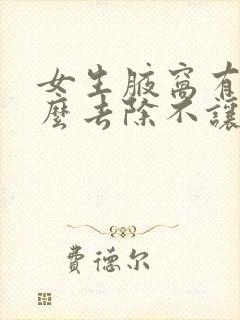 女生腋窩有
麼去除不讓
費德尔